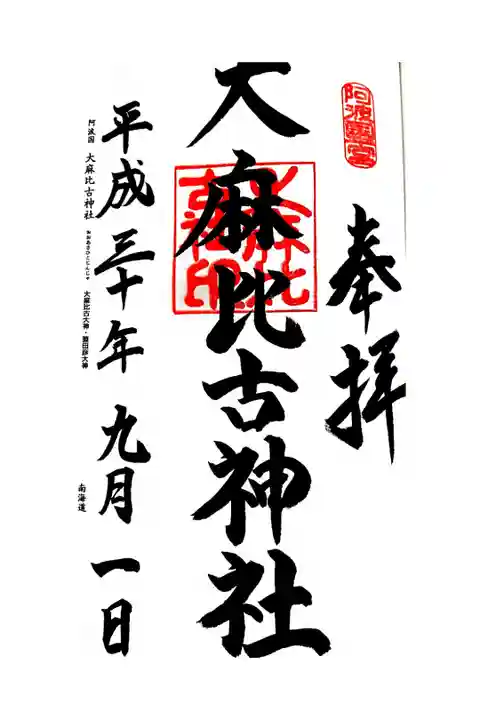 阿波一宮
奉拝
大麻比古神社
平成三十年九月一日
阿波国 大麻比古神社 おおあさひこじんじゃ 大麻比古大神・猿田彦大神 南海道